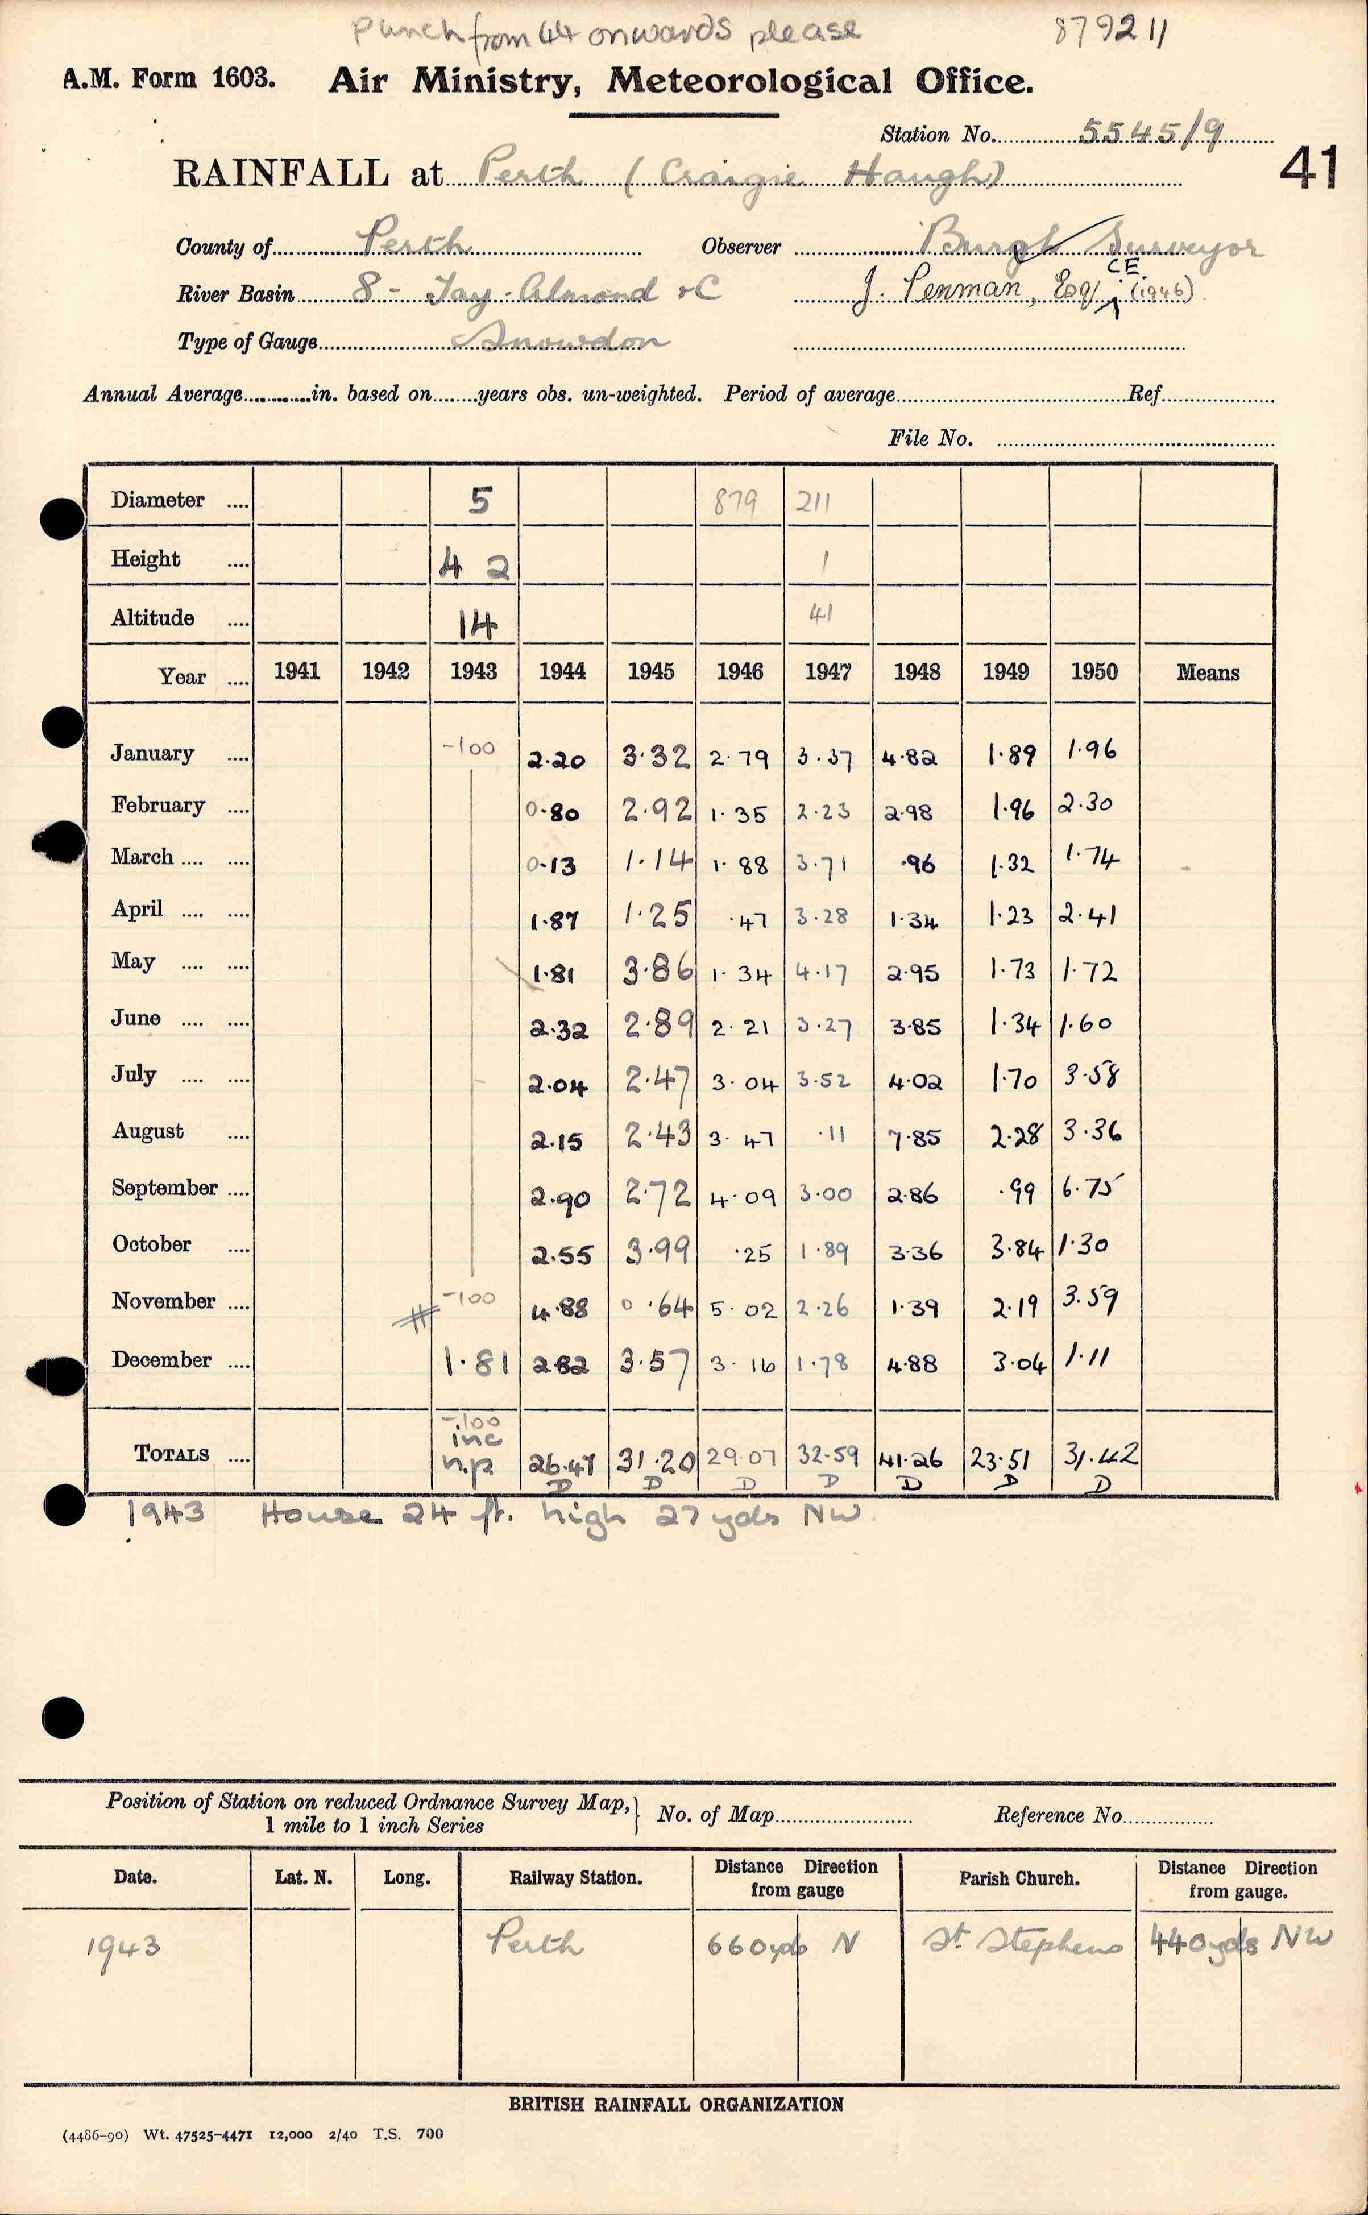 Punch from 44 onwards please 879211
A.M. Form 1603. Air Ministry, Meteorological Office.
Station No. 5545/9
41
RAINFALL at Perth (Craigie Haugh)
County of Perth Observer Burgh Surveyor
River Basin 8 - Tay-Almond &C J. Penman, Esq., C.E. (1946)
Type of Gauge Snowdon
Annual Average in. based on years obs. un-weighted. Period of average Ref.
File No.
Diameter .... 5 879 211
Height .... 4 2 1
Altitude .... 14 41
Year .... 1941 1942 1943 1944 1945 1946 1947 1948 1949 1950 Means
January .... -100 2.20 3.32 2.79 3.37 4.82 1.89 1.96
February .... 0.80 2.92 1.35 2.23 2.98 1.96 2.30
March .... .... 0.13 1.14 1.88 3.71 .96 1.32 1.74
April .... .... 1.87 1.25 .47 3.28 1.34 1.23 2.41
May .... .... 1.81 3.86 1.34 4.17 2.95 1.73 1.72
June .... .... 2.32 2.89 2.21 3.27 3.85 1.34 1.60
July .... .... 2.04 2.47 3.04 3.52 4.02 1.70 3.58
August .... 2.15 2.43 3.47 .11 7.85 2.28 3.36
September .... 2.90 2.72 4.09 3.00 2.86 .99 6.75
October .... 2.55 3.99 .25 1.89 3.36 3.84 1.30
November .... # -100 4.88 0.64 5.02 2.26 1.39 2.19 3.59
December .... 1.81 2.82 3.57 3.16 1.78 4.88 3.04 1.11
-100
inc
TOTALS .... n.p. 26.47 31.20 29.07 32.59 41.26 23.51 31.42
D D D D D D D
1943 House 24 ft. high 27 yds NW
Position of Station on reduced Ordnance Survey Map, No. of Map Reference No.
1 mile to 1 inch Series
Date. Lat. N. Long. Railway Station. Distance Direction from gauge Parish Church. Distance Direction from gauge.
1943 Perth 660 yds N St. Stephens 440 yds NW
BRITISH RAINFALL ORGANIZATION
(4486-90) Wt. 47525-4471 12,000 2/40 T.S. 700